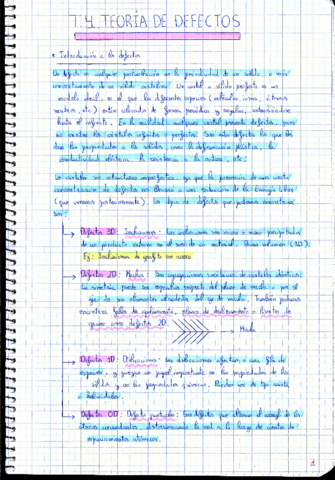 T.4. TEORÍA DE DEFECTOS
* Introducción a los defectos
Un defecto es cualquier perturbación en la periodicidad de un sólido, o más
concretamente de un sólido cristalino. Un cristal o sólido perfecto es un
modelo ideal, en el que las diferentes especies (moléculas, iones, átomos
neutros, etc.) están colocadas de forma periódica y regular, extendiéndose
hasta el infinito. En la realidad, cualquier cristal presenta defectos, pues
no existen los cristales infinitos y perfectos. Son estos defectos los que
dan las propiedades a los sólidos, como la deformación plástica, la
conductividad eléctrica, la resistencia a la rotura, etc.
Los cristales son estructuras imperfectas, ya que la presencia de una cierta
concentración de defectos
(que veremos posteriormente). Los tipos de defectos que podemos encontrar
son:
Defectos 3D: Inclusiones: Las inclusiones son
de un producto externo en el seno de un material. Poseen volumen (3D).
Ej: Inclusiones de grafito en acero
Defectos 2D: Maclas: Son agrupaciones simétricas de cristales idénticos.
La simetría puede ser especular respecto del plano de macla o por el
giro de sus elementos alrededor del eje de macla. También podemos
encontrar fallos de apilamiento, planos de deslizamiento o límites de
grano como defectos 2D.
Macla
Defectos 1D: Dislocaciones: Las dislocaciones afectan a una fila de
especies, y juegan un papel importante en las propiedades de los
sólidos y en las propiedades químicas. Pueden ser de tipo
o helicoidales.
Defectos 0D: Defectos puntuales: Son defectos que alteran el
átomos
1